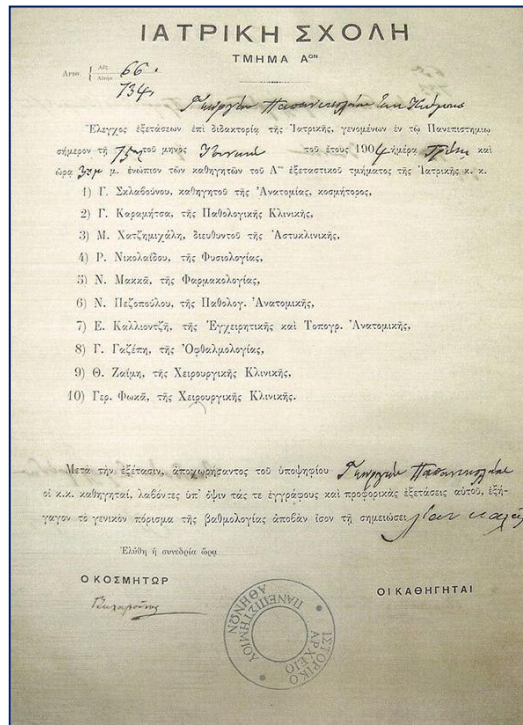 ΙΑΤΡΙΚΗ ΣΧΟΛΗ
ΤΜΗΜΑ Αᴼᴺ
66
734
Γεωργίου Παπανικολάου εκ Κύμης
Ἔλεγχος ἐξετάσεων ἐπὶ διδακτορίᾳ τῆς Ἰατρικῆς, γενομένων ἐν τῷ Πανεπιστημίῳ
σήμερον τῇ 15 τοῦ μηνὸς Ἰουνίου τοῦ ἔτους 1904 ἡμέρᾳ Τρίτῃ καὶ
ὥρᾳ μ. μ. ἐνώπιον τῶν καθηγητῶν τοῦ Αου ἐξεταστικοῦ τμήματος τῆς Ἰατρικῆς κ. κ.
1) Γ. Σκλαβούνου, καθηγητοῦ τῆς Ἀνατομίας, κοσμήτορος,
2) Γ. Καραμήτσα, τῆς Παθολογικῆς Κλινικῆς,
3) Μ. Χατζημιχάλη, διευθυντοῦ τῆς Ἀστυκλινικῆς,
4) Ρ. Νικολαΐδου, τῆς Φυσιολογίας,
5) Ν. Μακκᾶ, τῆς Φαρμακολογίας,
6) Ν. Πεζοπούλου, τῆς Παθολογ. Ἀνατομικῆς,
7) Ε. Καλλιοντζῆ, τῆς Ἐγχειρητικῆς καὶ Τοπογρ. Ἀνατομικῆς,
8) Γ. Γαζέπη, τῆς Ὀφθαλμολογίας,
9) Θ. Ζαΐμη, τῆς Χειρουργικῆς Κλινικῆς,
10) Γερ. Φωκᾶ, τῆς Χειρουργικῆς Κλινικῆς.
Μετὰ τὴν ἐξέτασιν, ἀποχωρήσαντος τοῦ ὑποψηφίου Γεωργίου Παπανικολάου
οἱ κ.κ. καθηγηταί, λαβόντες ὑπ' ὄψιν τάς τε ἐγγράφους καὶ προφορικὰς ἐξετάσεις αὐτοῦ, ἐξή-
γαγον τὸ γενικὸν πόρισμα τῆς βαθμολογίας ἀποβὰν ἴσον τῇ σημειώσει λίαν καλῶς
Ἐλύθη ἡ συνεδρία ὥρᾳ
Ο ΚΟΣΜΗΤΩΡ
ΟΙ ΚΑΘΗΓΗΤΑΙ
ΠΑΝΕΠΙΣΤΗΜΙΟΥ ΑΘΗΝΩΝ
ΙΣΤΟΡΙΚΟ ΑΡΧΕΙΟ